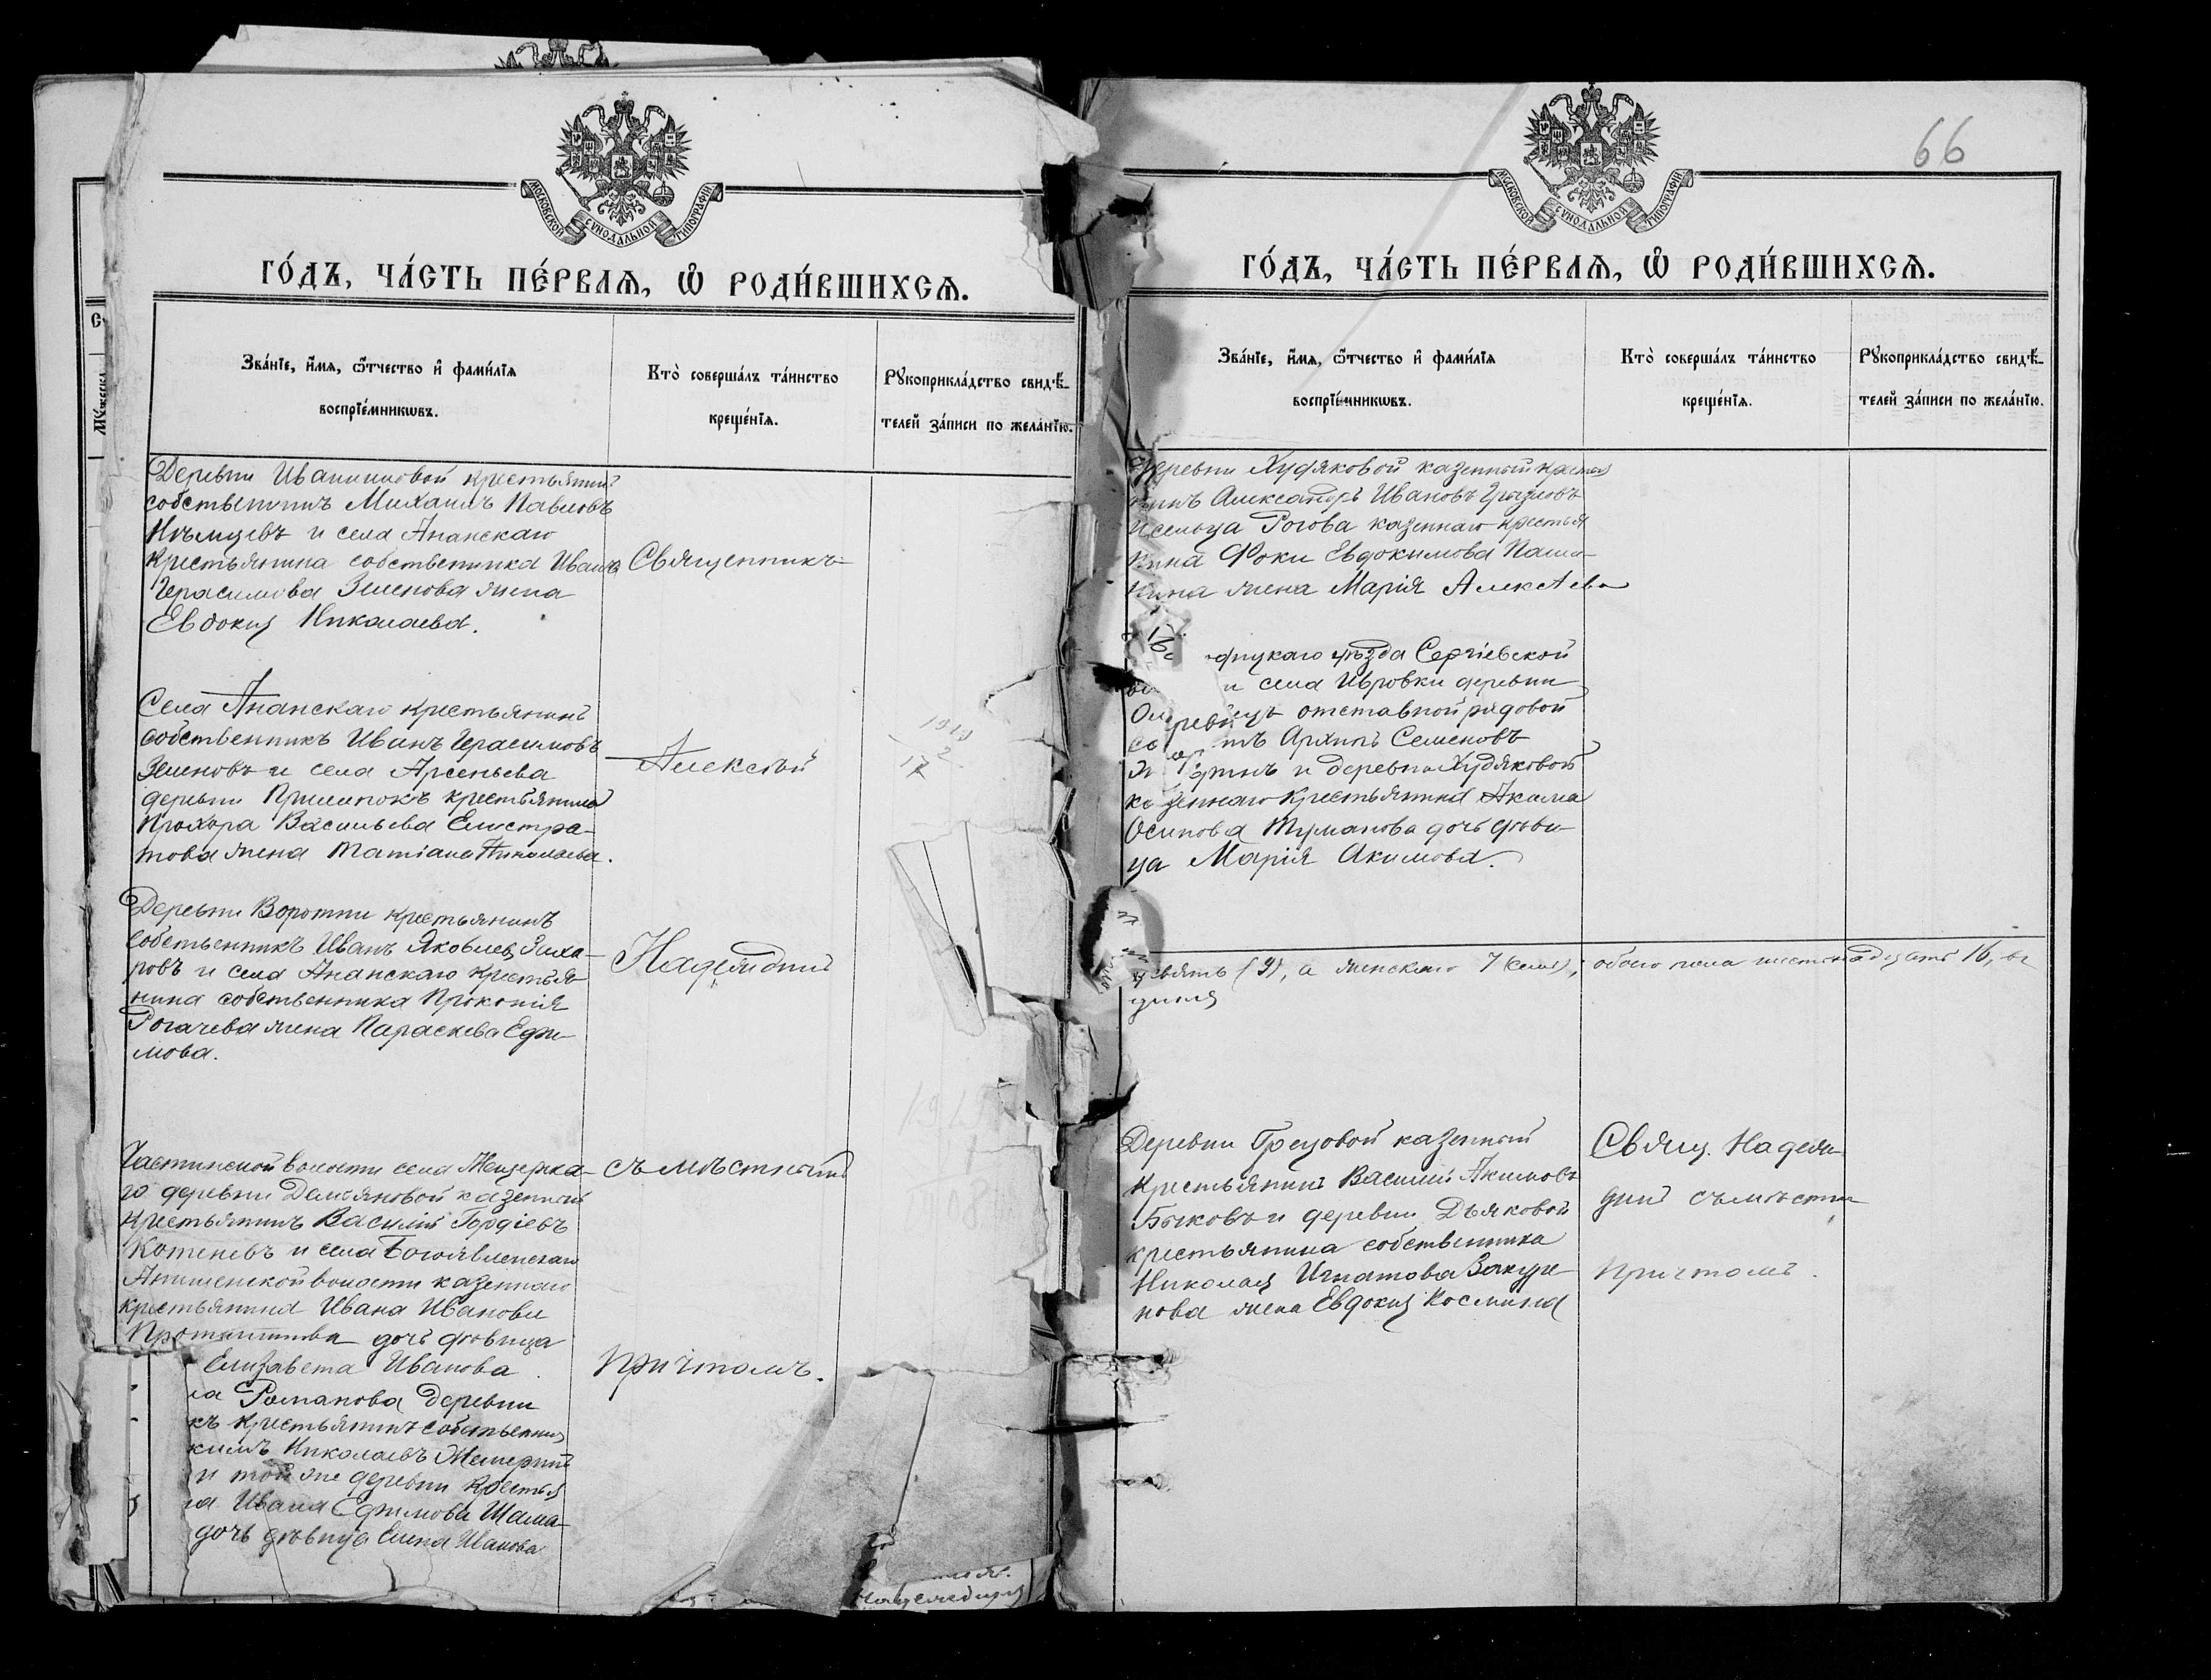 МОСКОВСКОЙ СУНОДАЛЬНОЙ ТИПОГРАФІИ
ГО́ДЪ, ЧА́СТЬ ПЕ́РВАЯ, Ѡ҆ РОДИ́ВШИХСЯ.
Зва́нїе, и҆́мѧ, ѻ҆́тчество и҆ фами́лїѧ
воспрїе́мникѡвъ.
Кто̀ соверша́лъ та́инство
креще́нїѧ.
Рꙋкоприкла́дство свидѣ́-
телей за́писи по жела́нїю.
собственникъ Михаилъ Павловъ
Нѣмцевъ и села Ананскаго
крестьянина собственника Ивана
Герасимова Зеленова жена
Евдокия Николаева.
Села Ананскаго крестьянинъ
собственникъ Иванъ Герасимовъ
Зеленовъ и села Арсеньева
деревни крестьянина
Прохора Васильева Елистра-
това жена Татіана Николаева.
Деревни крестьянинъ
собственникъ Иванъ Яковлев Заха-
ровъ и села Ананскаго крестья-
нина собственника Прокопія
Рогачева жена Параскева Ефи-
мова.
волости села
го деревни Демьяновой казенный
крестьянинъ Василій Гордіевъ
Котеневъ и села Богоявленскаго
волости казеннаго
крестьянина Ивана Иванова
дочь дѣвица
Елизавета Иванова
Романова деревни
къ крестьянинъ собственник
кимъ Николаевъ
и той же деревни крестья
на Ивана Ефимова Шама-
дочь дѣвица Елена Иванова
Священникъ
Алексѣй
Надеждинъ
съ мѣстнымъ
причтомъ.
66
МОСКОВСКОЙ СУНОДАЛЬНОЙ ТИПОГРАФІИ
ГО́ДЪ, ЧА́СТЬ ПЕ́РВАЯ, Ѡ҆ РОДИ́ВШИХСЯ.
Зва́нїе, и҆́мѧ, ѻ҆́тчество и҆ фами́лїѧ
воспрїе́мникѡвъ.
Кто̀ соверша́лъ та́инство
креще́нїѧ.
Рꙋкоприкла́дство свидѣ́-
телей за́писи по жела́нїю.
деревни Худяковой казенный крестья
нинъ Александръ Ивановъ
и сельца Рогова казеннаго крестья
нина Фоки Евдокимова Паша-
нина жена Марія Алексѣева
уѣзда Сергіевской
и села деревни
отставной рядовой
Архипъ Семеновъ
и деревни Худяковой
казеннаго крестьянина Акима
Осипова Туманова дочь дѣви-
ца Марія Акимова.
девять (9), а женскаго 7 (семь), обоего пола шестнадцать 16,
Деревни Грецовой казенный
крестьянинъ Василій Акимовъ
Быковъ и деревни Дьяковой
крестьянина собственника
Николая Игнатова
нова жена Евдокия Космина
Свящ. Надеж-
динъ съ мѣстн
причтомъ.